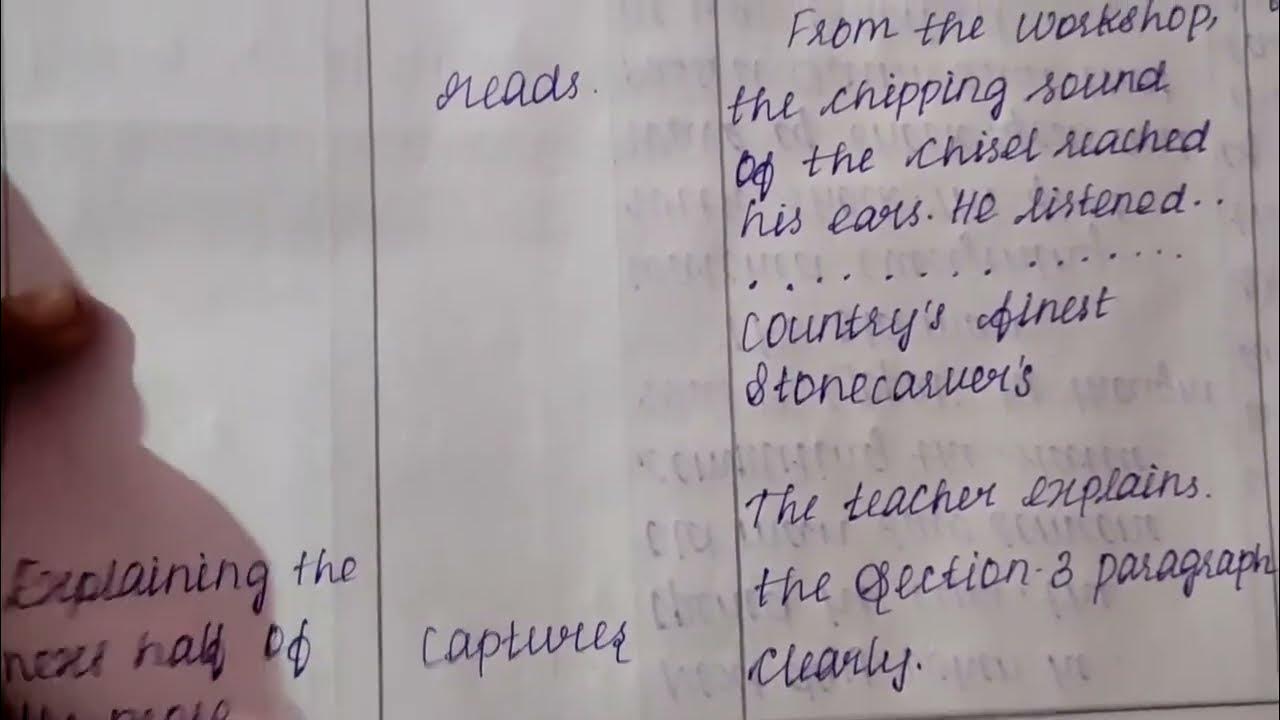 From the workshop,
reads.
the chipping sound
of the chisel reached
his ears. He listened..
. . . . . . . . . . . . . .
Country's finest
Stonecarver's
The teacher explains.
Explaining the
the Section-3 paragraph
half of
captures
clearly.